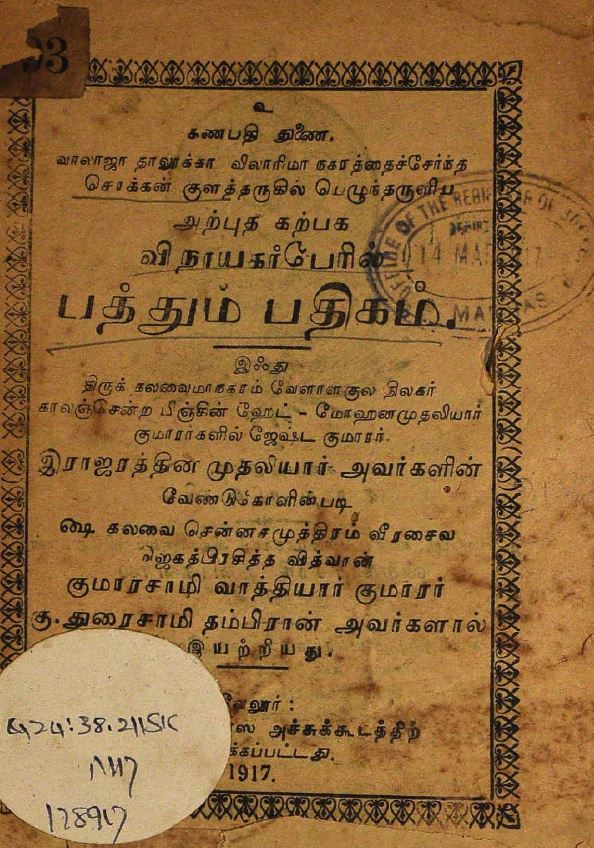 93
உ
கணபதி துணை.
வாலாஜா தாலூக்கா விலாரிமா நகரத்தைச்சேர்ந்த
சொக்கன் குளத்தருகில் பெழுந்தருளிய
அற்புத கற்பக
விநாயகர்பேரில்
பத்தும் பதிகம்.
இஃது
திருக் கலவைமாநகரம் வேளாளகுல திலகர்
காலஞ்சென்ற பிஞ்சின் ஹேட் - மோஹனமுதலியார்
குமாரர்களில் ஜேஷ்ட குமாரர்.
இராஜரத்தின முதலியார் அவர்களின்
வேண்டுகோளின்படி
ஷை கலவை சென்னசமுத்திரம் வீரசைவ
ஜெகத்பிரசித்த வித்வான்
குமாரசாமி வாத்தியார் குமாரர்
கு. துரைசாமி தம்பிரான் அவர்களால்
இயற்றியது.
வேலூர் :
அச்சுக்கூடத்திற்
க்கப்பட்டது.
1917.
OFFICE OF THE REGISTRAR OF BOOKS
14 MAR 17
MADRAS
N17
128917